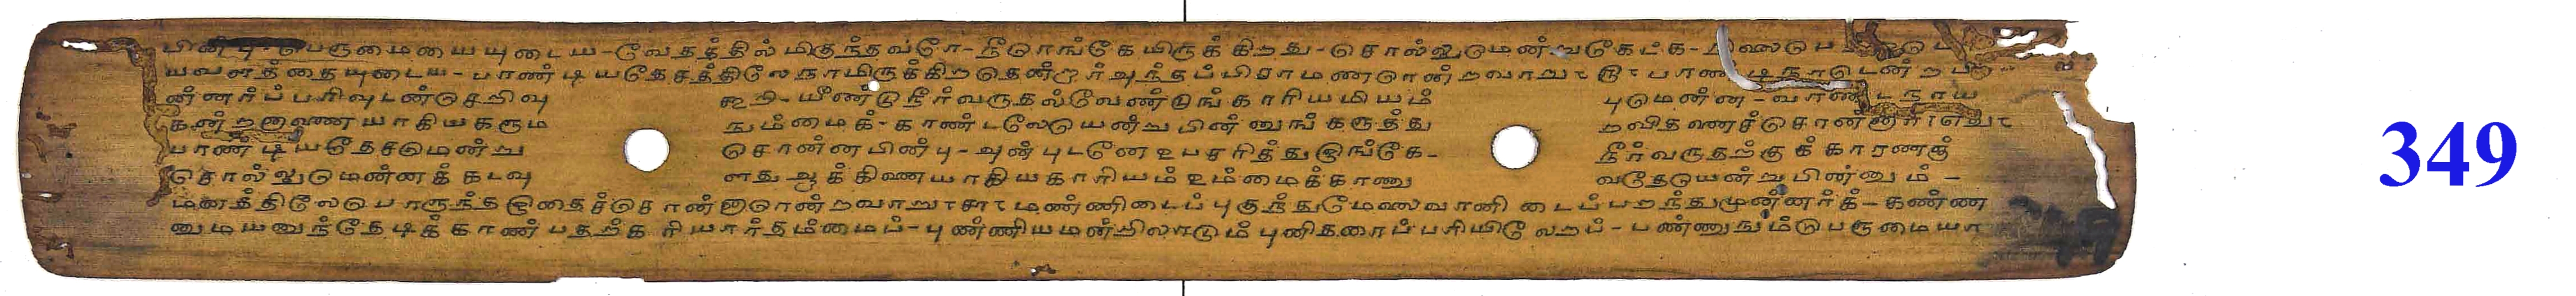 பின்பு-பெருமையையுடைய-வேதத்தில் மிகுந்தவரே-நீராங்கே யிருக்கிறது-சொல்லுமென்றுகேட்க-
யவளத்தையுடைய-பாண்டியதேசத்திலேநாயிருக்கிறதென்றார்அந்தப்பிராமணரென்றவாறு-ரு-பாண்டிநாடென்ற
ன்னர்ப் பரிவுடன்செறிவு கூறி-யீண்டுநீர்வருதல்வேண்டுங்காரியமியம் புமென்ன-வாண்டநாய
கன்றனாணையாகியகரும நும்மைக்-காண்டலேயென்றுபின்னுங் கருத்து றவிதனைச்சொன்னார்
பாண்டியதேசமென்று சொன்னபின்பு-அன்புடனேஉபசரித்துஇங்கே- நீர்வருதற்குக்காரணஞ்
சொல்லுமென்னக்கடவு ளதுஆக்கினையாகியகாரியம்உம்மைக்காணு வதேயென்றுபின்னும்-
மனத்திலே பொருந்தஇதைச்சொன்னாரென்றவாறு-சா-மண்ணிடைப்புகுந்துமேலைவானிடைப்பறந்துமுன்னர்க்-கண்ண
னுமயனுந்தேடிக்காண்பதற்கரியார்தம்மைப்-புண்ணியமன்றிலாடும்புனிதரைப்பரியிலேறப்-பண்ணுநும்பெருமையா
349